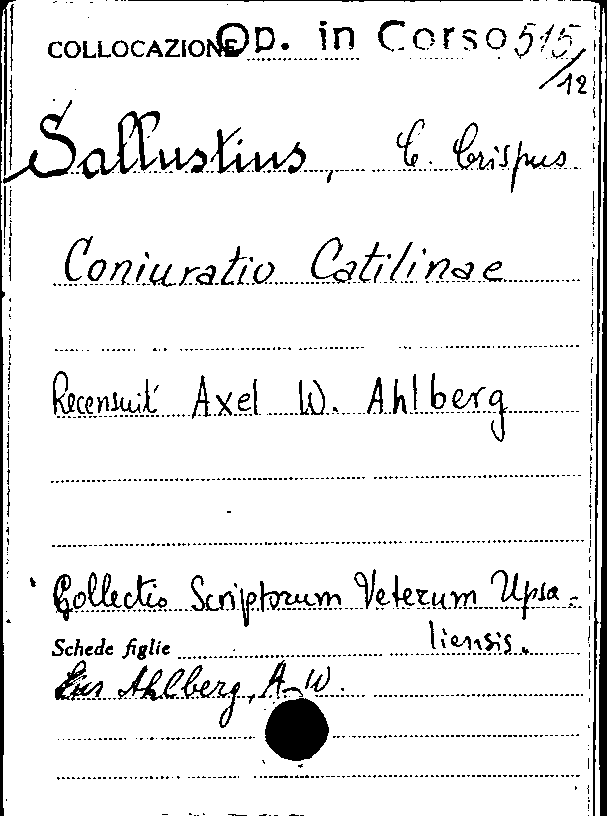 COLLOCAZIONE Op. in Corso 515/12
Sallustius, C. Crispus
Coniuratio Catilinae
Recensuit Axel W. Ahlberg
Collectio Scriptorum Veterum Upsa-
liensis.
Schede figlie
Ahlberg, A. W.